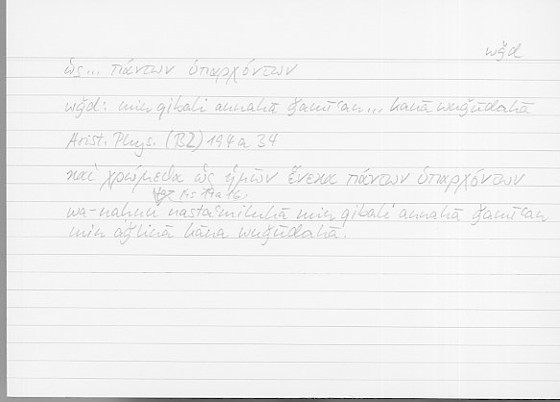 wǧd
ὡς... πάντων ὑπαρχόντων
wǧd: min qibali annahā ǧamīʿan... kāna wuǧūdahā
Arist. Phys. (B2) 194a 34
καὶ χρώμεθα ὡς ἡμῶν ἕνεκα πάντων ὑπαρχόντων
wa-naḥnu nastaʿmiluhā min qibali annahā ǧamīʿan
min aǧlinā kāna wuǧūdahā.